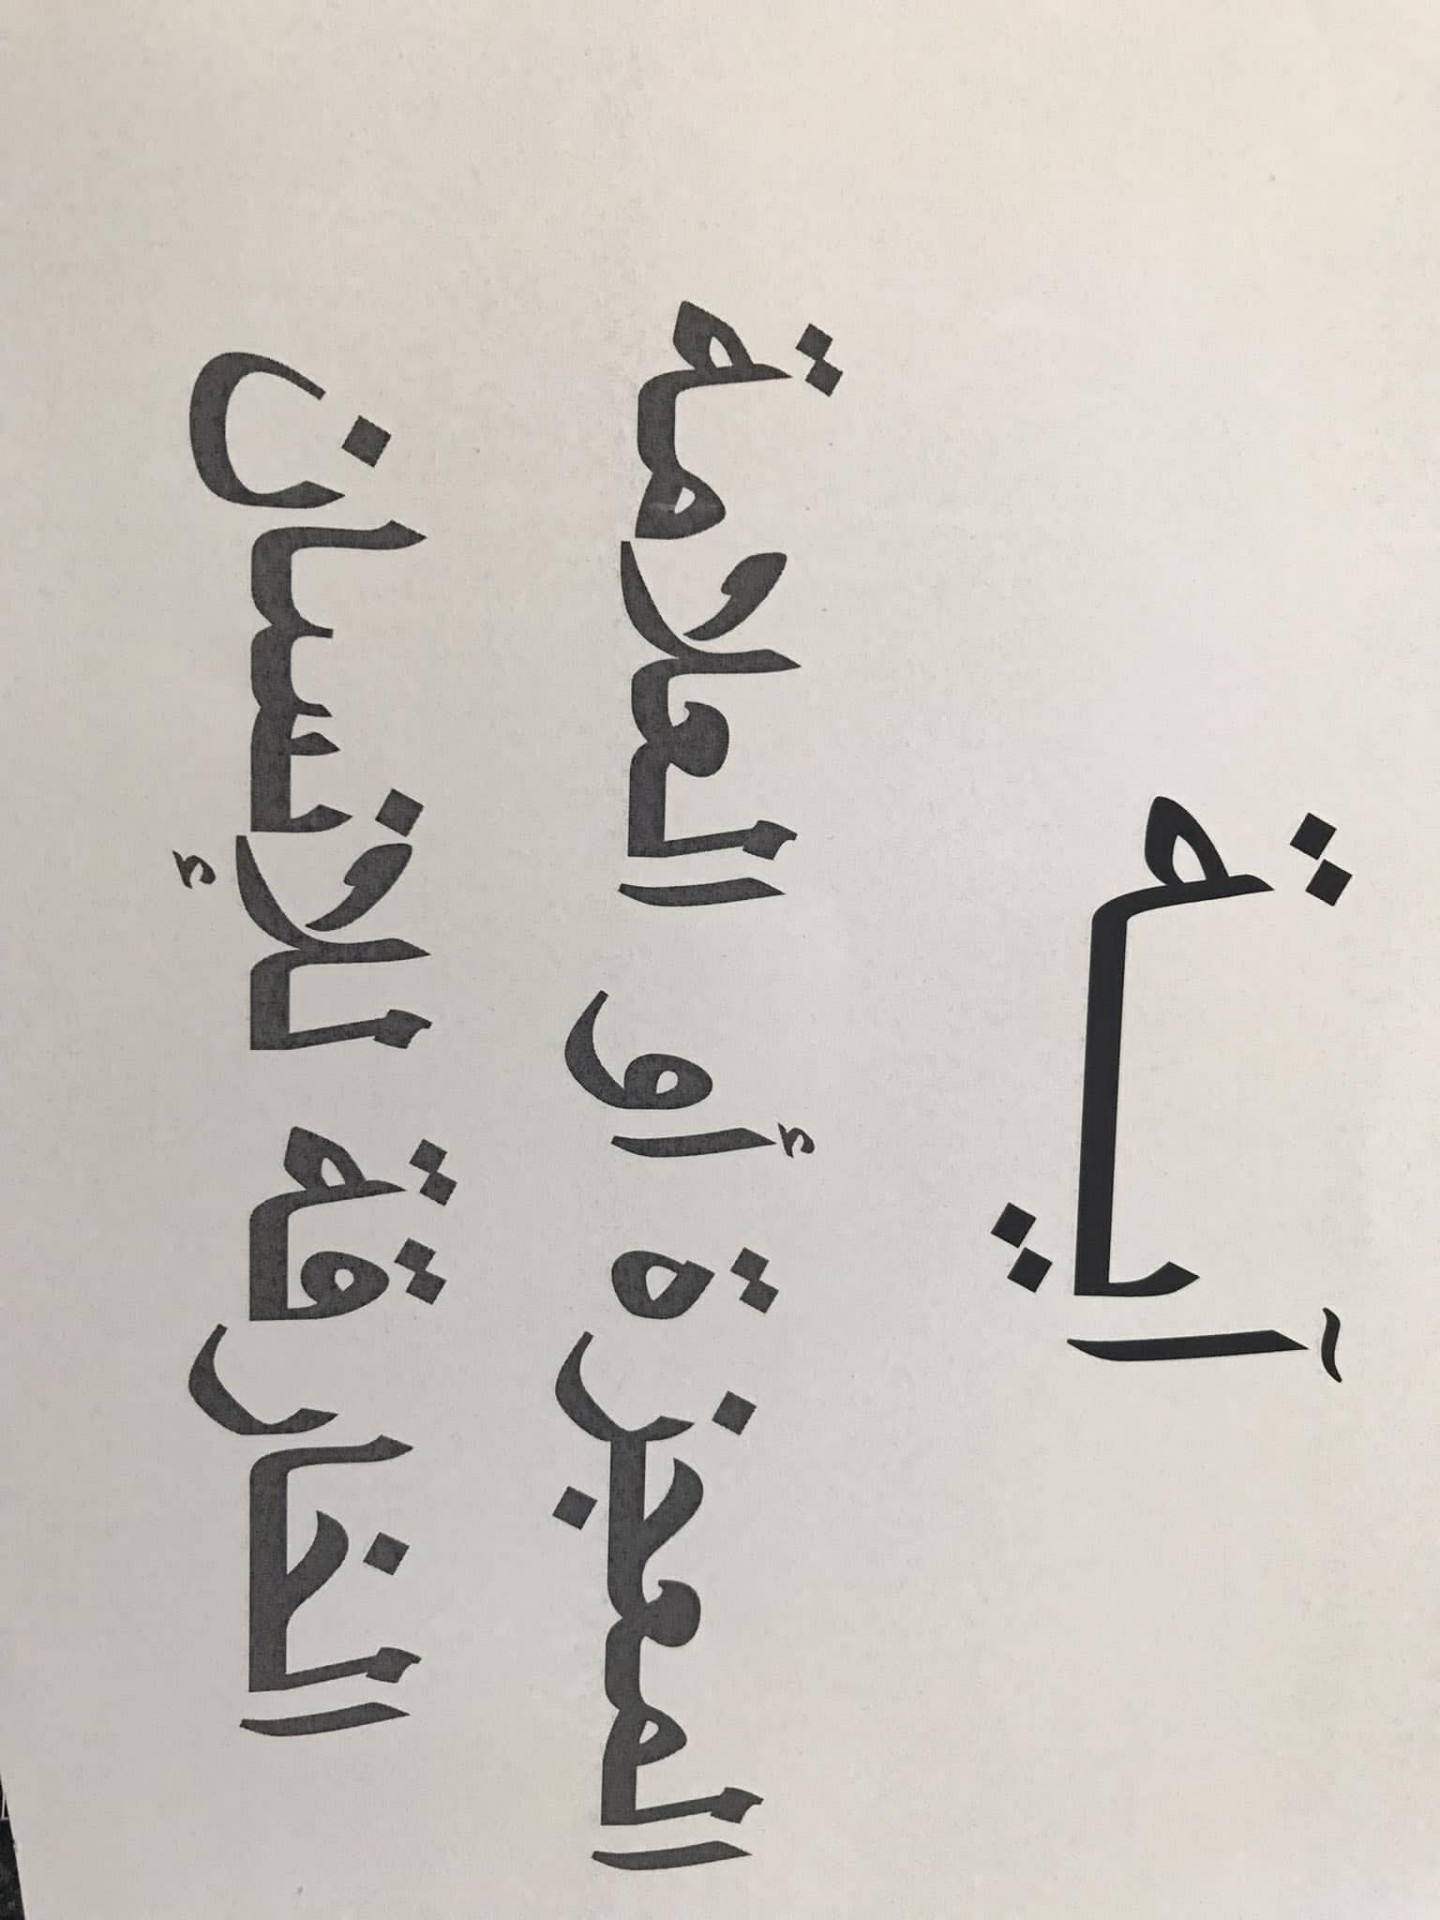 آية
المعجزة أو العلامة
الخارقة للإنسان